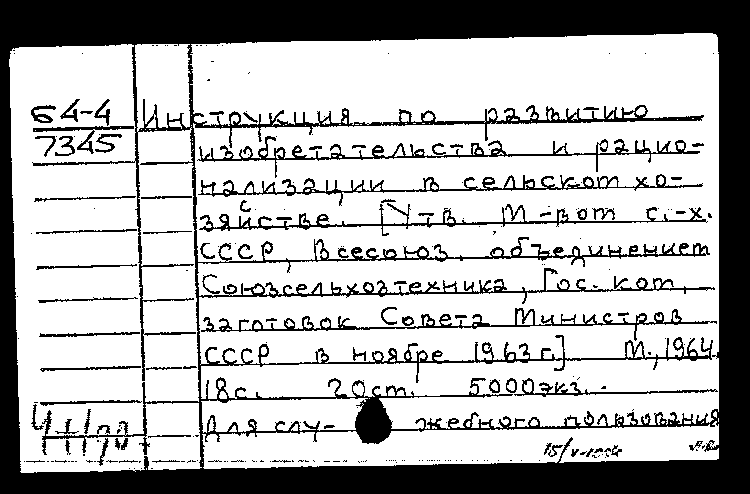 64-4 Инструкция по развитию
7345 изобретательства и рацио-
нализации в сельском хо-
зяйстве. [Утв. М-вом с.-х.
СССР, Всесоюз. объединением
Союзсельхозтехника, Гос. ком.
заготовок Совета Министров
СССР в ноябре 1963 г.] М., 1964.
18 с. 20 см. 5000 экз.
Для слу- жебного пользования